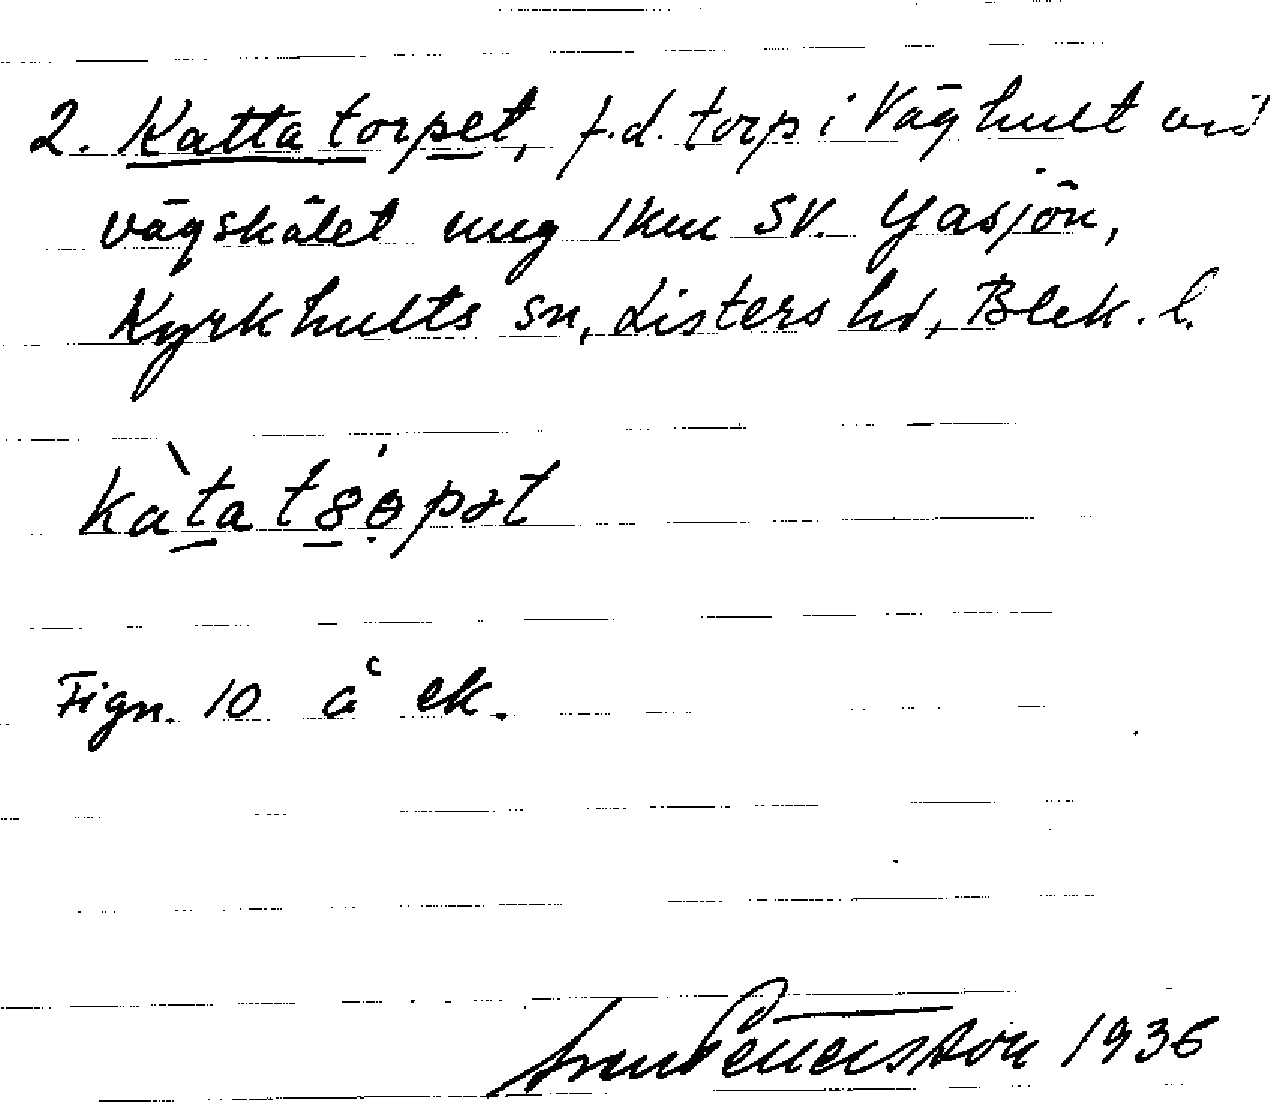 2. Kattatorpet, f.d. torp i Väghult vid
vägskälet ung 1km SV. Yasjön,
Kyrkhults sn, Listers hd, Blek. l.
Fign. 10 å ek.
1936